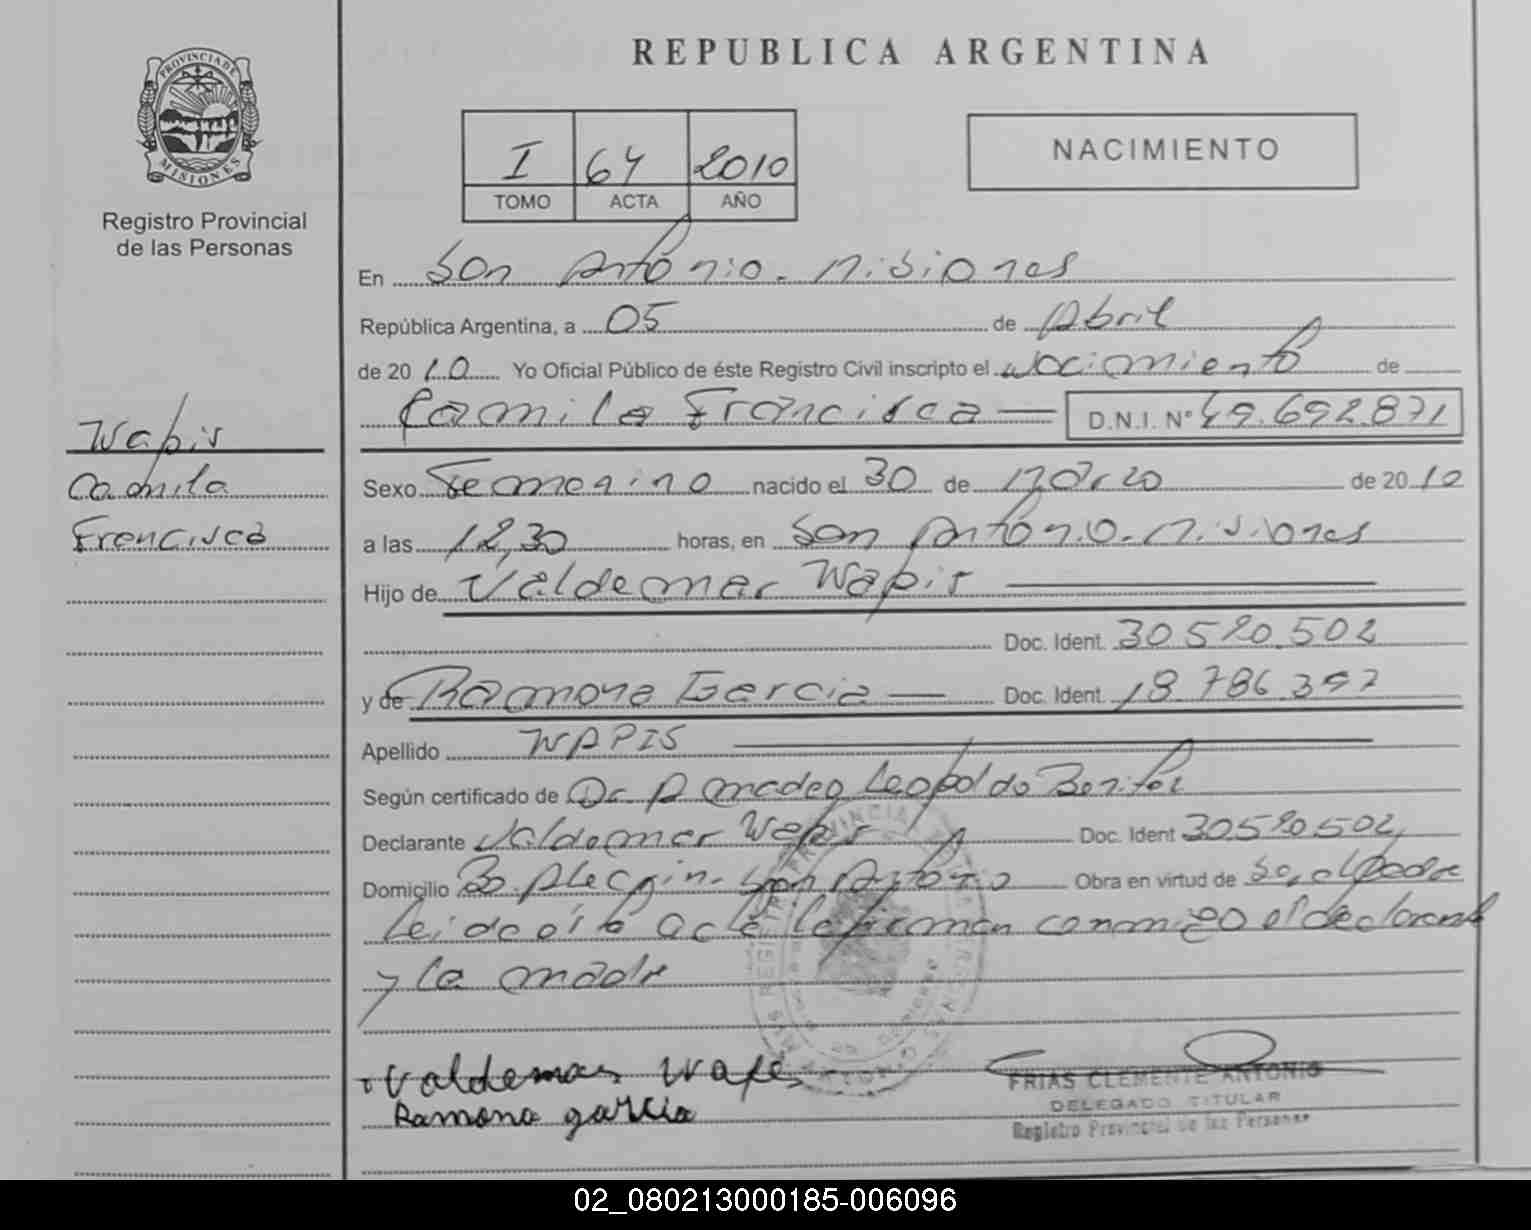 REPUBLICA ARGENTINA
PROVINCIA DE
MISIONES
Registro Provincial
de las Personas
I 64 2010
TOMO ACTA AÑO
NACIMIENTO
En San Antonio - Misiones
República Argentina, a 05 de Abril
de 2010 Yo Oficial Público de éste Registro Civil inscripto el Nacimiento de
Camila Francisca D.N.I. Nº 49.692.871
Wapis
Camila
Francisca
Sexo Femenino nacido el 30 de Marzo de 2010
a las 12,30 horas, en San Antonio - Misiones
Hijo de Valdemar Wapis
Doc. Ident. 30.520.502
y de Ramona Garcia Doc. Ident. 18.786.397
Apellido WAPIS
Según certificado de Dr. Amadeo Leopoldo
Declarante Valdemar Wapis Doc. Ident 30520502
Domicilio Bo. San Antonio Obra en virtud de Ser el padre
Leida esta acta la firman conmigo el declarante
y la madre
Valdemar Wapis
Ramona garcia
FRIAS CLEMENTE ANTONIO
DELEGADO TITULAR
Registro Provincial de las Personas
02_080213000185-006096